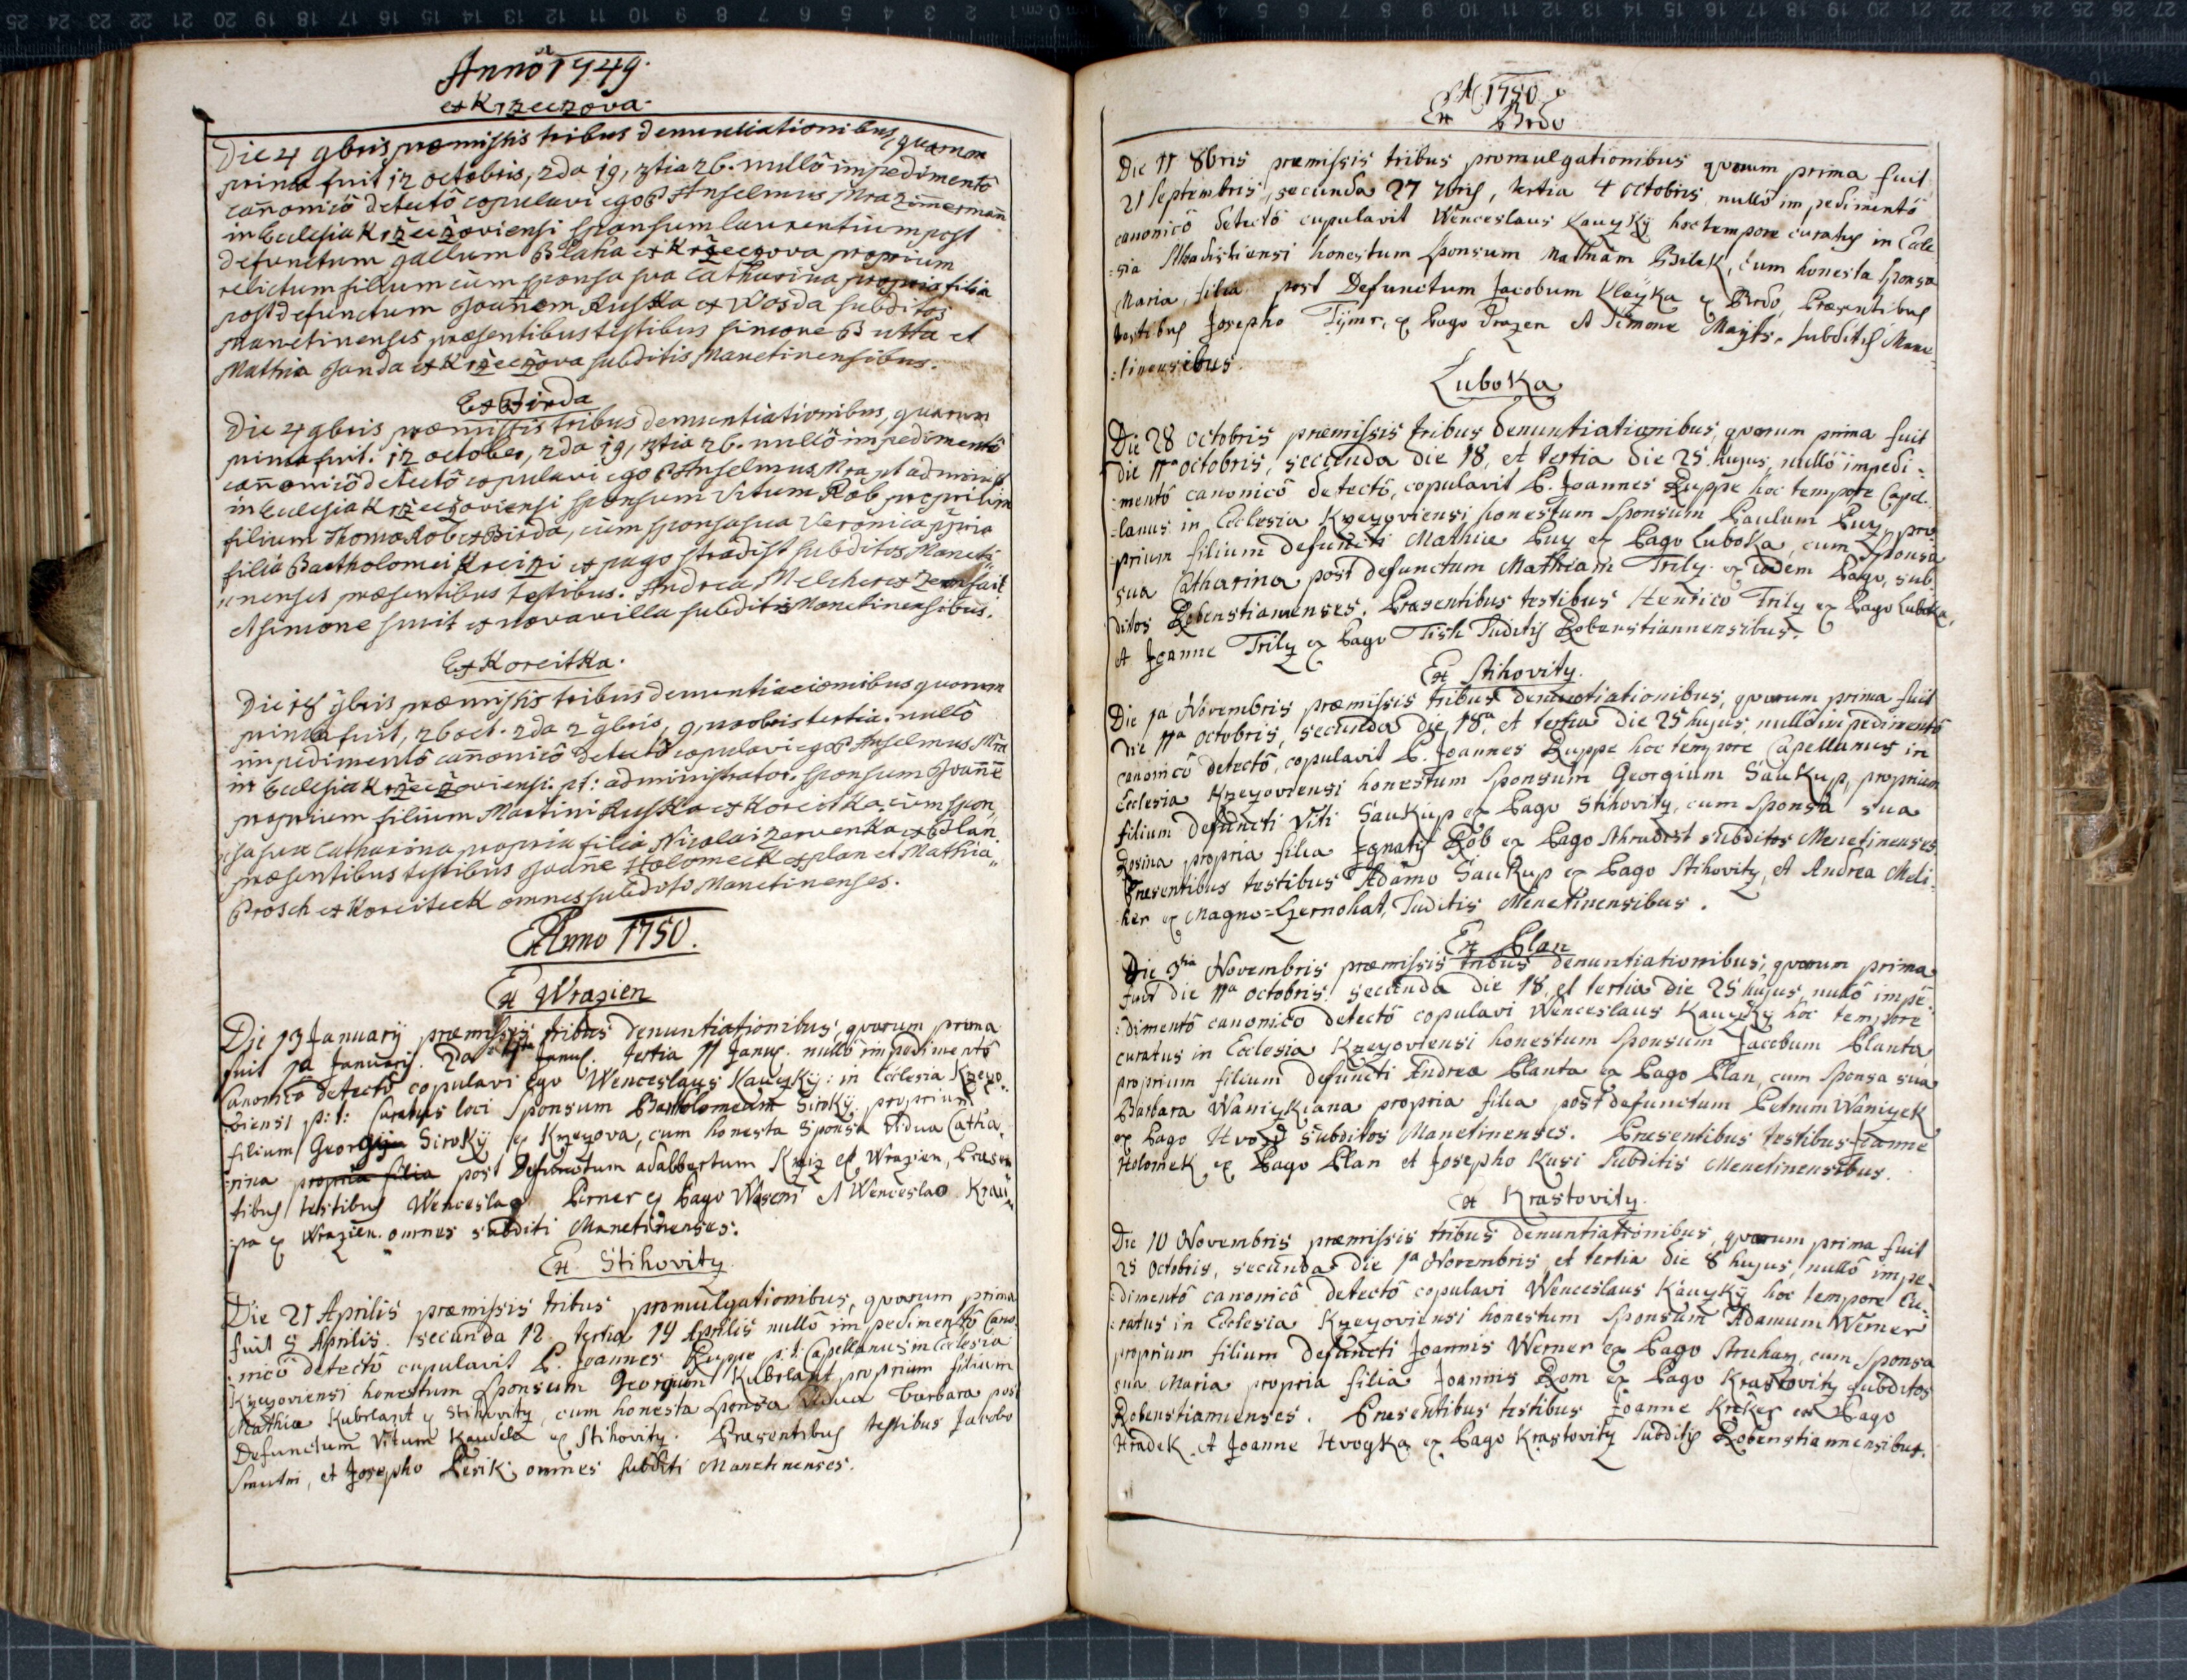 Anno 1749.
ex Krzeczova.
Die 4 9bris præmissis tribus denuntiationibus, quarum
prima fuit 12 octobris, 2da 19, 3tia 26. nullô impedimentô
cañonicô detectô copulavi ego P Anselmus Mraz
in Ecclesia Krzeczoviensi sponsum laurentium post
defunctum gallum Blaha ex Krzeczova proprium
relictum filium cum sponsa sua Catharina propria filia
post defunctum Joañem Ruska ex Wosda subditos
Manetinenses præsentibus testibus simone Butta et
Mathia Janda ex Krzeczova subditis Manetinensibus.
Ex Birda
Die 4 9bris præmissis tribus denuntiationibus, quarum
prima fuit. 12 october, 2da 19, 3tia 26. nullô impedimentô
cañonicô detectô copulavi ego P Anselmus Mraz pt administ
in Ecclesia Krzeczoviensi sponsum Vitum Rob proprium
filium Thomæ Rob ex Birda, cum sponsa sua Veronica ppria
filia Bartholomei Kreizi ex pago stradist subditos Maneti
nenses præsentibus testibus. Andrea Melcher ex
et simone smit ex nova villa subditis Manetinensibus.
Ex Koreitka.
Die 18 9bris præmissis tribus denuntiacionibus quorum
prima fuit, 26 oct. 2da 2 9bris, 9 novobris tertia. nullô
impedimentô cañonicô detectô copulavi ego P Anselmus Mra
in Ecclesia Krzeczoviensi. pt: administrator. sponsum Joañe
proprium filium Martini Ruska ex Koreitka, cum spon„
sa sua Catharina propria filia Nicolai zervenka ex Plan
præsentibus testibus Joañe Holomeck ex plan et Mathia„
Prosch ex Koreiteck omnes subditos Manetinenses.
Anno 1750.
Ex Wrazien
Die 13 January præmissis tribus denuntiationibus, quorum prima
fuit 1a January. 2da 4ta Janus. tertia 11 Janus. nullô impedimentô
Canonicô detectô copulavi ego Wenceslaus Kauzkÿ: in Ecclesia Krzeyo„
viensi p: t: Curatus loci Sponsum Bartolomeum Sirokÿ proprium
filium Georgij Sirokÿ ex Krzeyova, cum honesta Sponsa Vidua Catha„
rina propria filia post Defunctum adalbertum Kreiz ex Wrazien, Præsen
tibus testibus Wenceslao Perner ex Pago Waseni et Wenceslao Krau„
pa ex Wrazien. omnes subditi Manetinenses.
Ex Stihovity.
Die 21 Aprilis præmissis tribus promulgationibus, quorum prima
fuit 5 Aprilis. secunda 12. tertia 19 Aprilis nullô impedimentô Cano
nicô detectô cupulavit P. Joannes Ruppe p: t: Capellanus in Ecclesia
Krzeyoviensi honestum Sponsum Georgium Kubelant proprium filium
Mathiæ Kubelant ex Stihovity, cum honesta Sponsa Vidua Barbara post
Defunctum Vitum Kaudela ex Stihovity. Præsentibus testibus Jacobo
Smutni, et Josepho Pesik, omnes subditi Manetinenses.
A: 1750
Ex Brdo
Die 11 8bris præmissis tribus promulgationibus quorum prima fuit
21 septembris, secunda 27 7bris, tertia 4 octobris nullô impedimentô
canonicô detectô cupulavit Wenceslaus Kauzkÿ hoc tempore curatus in Ecle
:sia Mladistiensi honestum Sponsum Mathiam Bilek, cum honesta Sponsa
Maria, filia post Defunctum Jacobum Kleyka ex Brdo, Præsentibus
testibus Josepho Tymr, ex Pago Drazen et Simone subditis Mane
:tinensibus.
Luboka
Die 28 octobris præmissis tribus denuntiationibus, quorum prima fuit
die 11a octobris, secunda die 18, et tertia die 25 hujus, nullô impedi:
:mentô canonicô detectô, copulavit P. Joannes Ruppe hoc tempore Capel:
:lanus in Ecclesia Krzeyoviensi honestum Sponsum Paulum Puy, pro
prium filium defuncti Mathiæ Puy ex Pago Luboka, cum Sponsa
sua Catharina post defunctum Mathiam Trily ex eodem Pago, sub
ditos Robenstiamenses. Præsentibus testibus Henrico Trily ex Pago Luboka,
et Joanne Trily ex Pago Tish Suditis Robenstiannensibus.
Ex Stihovity.
Die 1a Novembris præmissis tribus denuntiationibus, quorum prima fuit
die 11a octobris, secunda die 18a, et tertia die 25 hujus, nullô impedimentô
canonicô detectô, copulavit P. Joannes Ruppe hoc tempore Capellanus in
Ecclesia Krzeyoviensi honestum Sponsum Georgium Saukup, proprium
filium defuncti Viti Saukup ex Pago Stihovity, cum Sponsa sua
Rosina propria filia Ignatÿ Rob ex Pago Sthradist subditos Menetinenses.
Præsentibus testibus Adamo Saukup ex Pago Stihovity, et Andrea Meli:
:ker ex Magno=Czernohat, Suditis Menetinensibus.
Ex Plan
Die 3tia Novembris præmissis tribus denuntiationibus, quorum prima
fuit die 11a octobris, secunda die 18, et tertia die 25 hujus, nullô impe:
:dimentô canonico detectô copulavi Wenceslaus Kauzkÿ hoc tempore
curatus in Ecclesia Krzeyoviensi honestum Sponsum Jacobum Planta
proprium filium defuncti Andreæ Planta ex Pago Plan, cum Sponsa sua
Barbara Waniczkiana propria filia post defunctum Petrum Waniczek
ex Pago Hvozd subditos Manetinenses. Præsentibus testibus Joanne
Holomek ex Pago Plan et Josepho Kusi Subditis Menetinensibus.
Ex Krastovity.
Die 10 Novembris præmissis tribus denuntiationibus, quorum prima fuit
25 Octobris, secunda die 1a Novembris, et tertia die 8 hujus, nullô impe:
:dimentô canonicô detectô copulavi Wenceslaus Kauzkÿ hoc tempore Cu:
:ratus in Ecclesia Krzeyoviensi honestum Sponsum Adamum Werner
proprium filium defuncti Joannis Werner ex Pago Struhay, cum Sponsa
sua Maria propria filia Joannis Rom ex Pago Krastovity subditos
Robenstiamienses. Præsentibus testibus Joanne Kreker ex Pago
Hradek et Joanne Hvogka ex Pago Krastovity Subditis Robenstiannensibus.